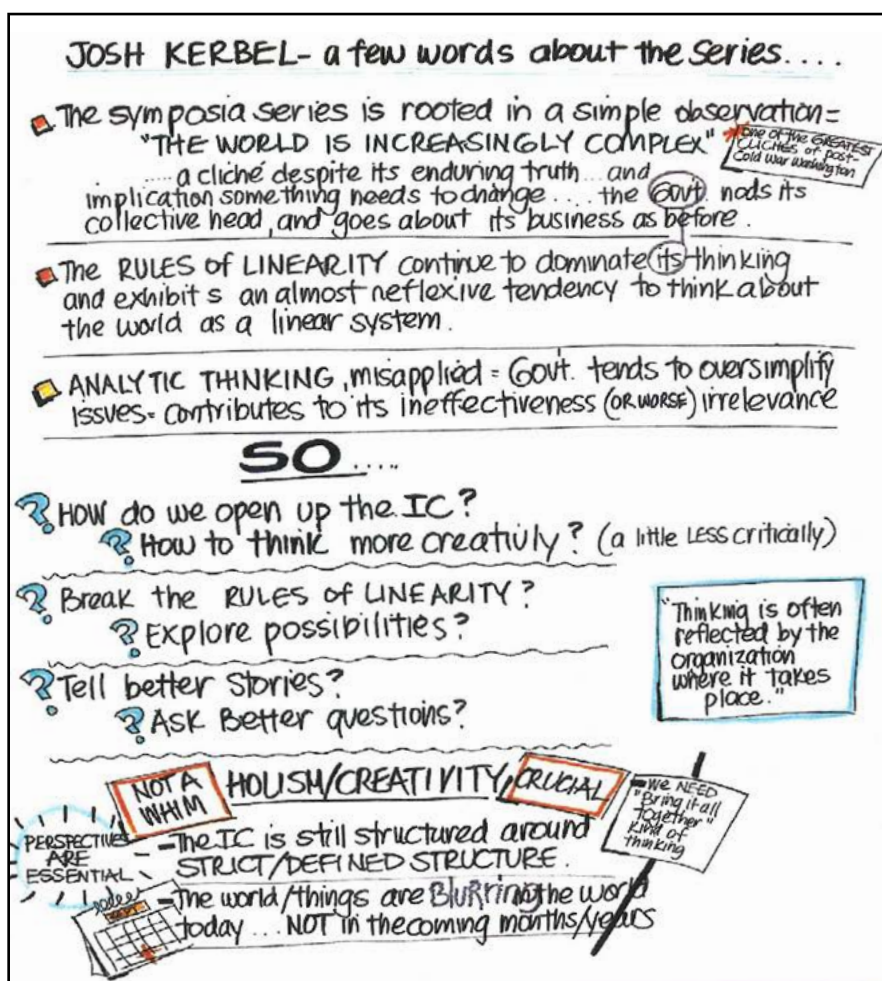 JOSH KERBEL- a few words about the series....
The symposia series is rooted in a simple observation=
"THE WORLD IS INCREASINGLY COMPLEX"
one of the GREATEST
CLICHÉS of post-
Cold War Washington
....a cliché despite its enduring truth...and
implication something needs to change.... the Govt. nods its
collective head, and goes about its business as before.
The RULES of LINEARITY continue to dominate its thinking
and exhibits an almost reflexive tendency to think about
the world as a linear system.
ANALYTIC THINKING, misapplied = Govt. tends to oversimplify
issues= contributes to its ineffectiveness (OR WORSE) irrelevance
SO....
? HOW do we open up the IC?
? How to think more creativly? (a little LESS critically)
? Break the RULES of LINEARITY?
? Explore possibilities?
? Tell better stories?
? Ask Better questions?
"Thinking is often
reflected by the
organization
where it takes
place."
NOT A
WHIM
HOLISM/CREATIVITY,
CRUCIAL
-We NEED
"Bring it all
Together"
Kind of
thinking
PERSPECTIVES
ARE
ESSENTIAL
-The IC is still structured around
STRICT/DEFINED STRUCTURE.
-The world/things are BluRring in the world
today...NOT in the coming months/years